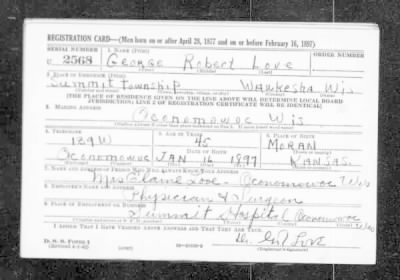 REGISTRATION CARD—(Men born on or after April 28, 1877 and on or before February 16, 1897)
SERIAL NUMBER 1. NAME (Print) ORDER NUMBER
U 2568 George Robert Love
(First) (Middle) (Last)
2. PLACE OF RESIDENCE (Print)
Summit Township Waukesha Wis
(THE PLACE OF RESIDENCE GIVEN ON THE LINE ABOVE WILL DETERMINE LOCAL BOARD
JURISDICTION; LINE 2 OF REGISTRATION CERTIFICATE WILL BE IDENTICAL)
3. MAILING ADDRESS
Oconomowoc Wis
4. TELEPHONE 5. AGE IN YEARS 6. PLACE OF BIRTH
129W 45 MORAN
DATE OF BIRTH
Oconomowoc JAN 16 1897 KANSAS
7. NAME AND ADDRESS OF PERSON WHO WILL ALWAYS KNOW YOUR ADDRESS
Mrs Love - Oconomowoc Wis
8. EMPLOYER'S NAME AND ADDRESS
Physician & Surgeon
9. PLACE OF EMPLOYMENT OR BUSINESS
Summit Hospital Oconomowoc
I AFFIRM THAT I HAVE VERIFIED ABOVE ANSWERS AND THAT THEY ARE TRUE.
D. S. S. Form 1
Dr. Love